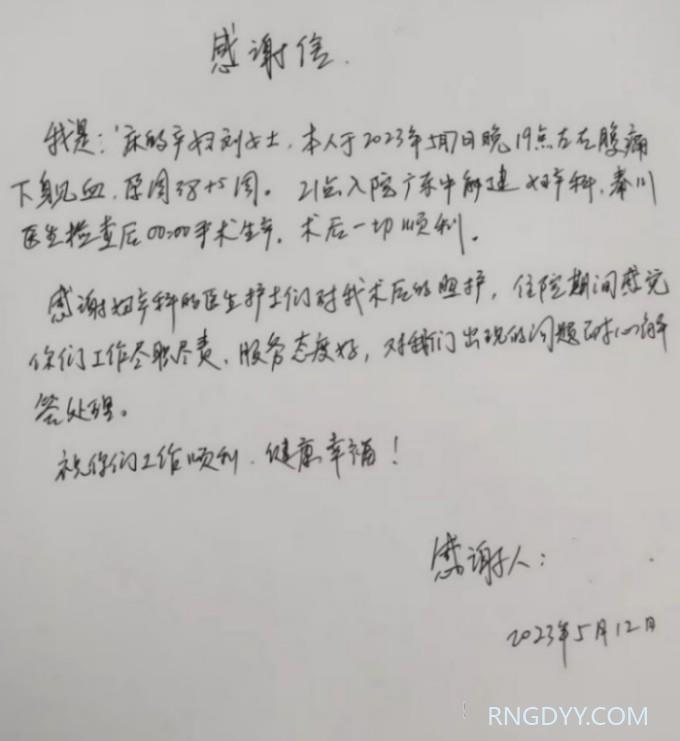 感谢信.
我是: 床的产妇刘女士,本人于2023年5月7日晚19点左右腹痛
下身见血,孕周38+5周。 21点入院广东中能建妇产科,秦川
医生检查后00:00手术生产,术后一切顺利。
感谢妇产科的医生护士们对我术后的照护,住院期间感觉
你们工作尽职尽责,服务态度好,对我们出现的问题耐心解
答处理。
祝你们工作顺利,健康幸福!
感谢人:
2023年5月12日
RNGDYY.COM